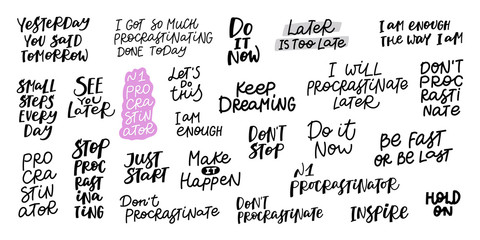 YESTERDAY
YOU SAID
TOMORROW
I GOT SO MUCH
PROCRASTINATING
DONE TODAY
DO
IT
NOW
LATER
IS TOO LATE
I AM ENOUGH
THE WAY I AM
SMALL
STEPS
EVERY
DAY
SEE
YOU
LATER
N1
PRO
CRA
STIN
ATOR
LET'S
DO
THIS
I AM
ENOUGH
KEEP
DREAMING
I WILL
PROCRASTINATE
LATER
DON'T
PROC
RASTI
NATE
PRO
CRA
STIN
ATOR
STOP
PROC
RAST
INA
TING
JUST
START
MAKE
IT
HAPPEN
DON'T
STOP
Do it
Now
BE FAST
OR BE LAST
Don't
PROCRASTINATE
DON'T
PROCRASTINATE
N1
PROCRASTINATOR
INSPIRE
HOLD
ON